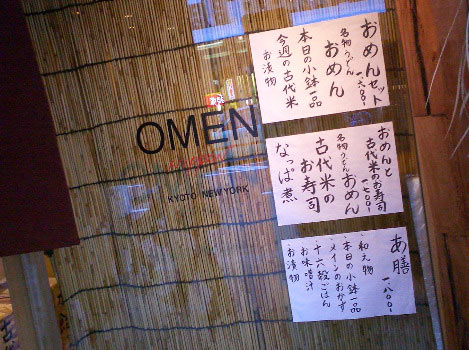 おめんセット
一、六〇〇-
名物うどん
おめん
本日の小鉢一品
今週の古代米
お漬物
OMEN
KYOTO NEW YORK
おめんと
古代米のお寿司
一、七〇〇-
名物うどん
おめん
古代米の
お寿司
なっぱ煮
あ膳
一、八〇〇-
・和え物
・本日の小鉢一品
・メインのおかず
・十六穀ごはん
・お味噌汁
・お漬物